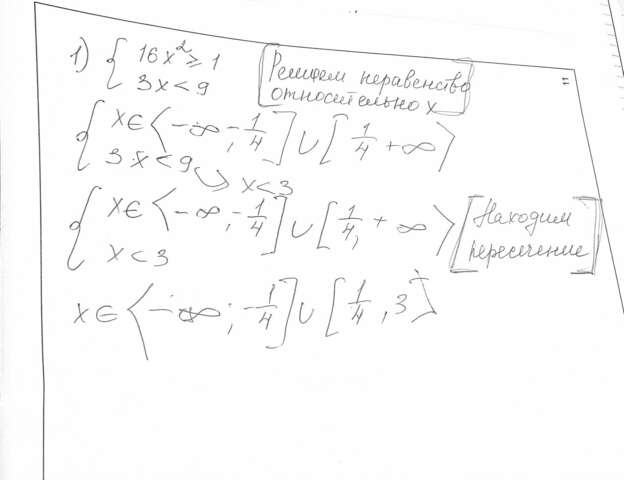 1) { 16x² ≥ 1
3x < 9
[Решаем неравенство
относительно x]
{ x∈⟨-∞; -1/4] ∪ [1/4 +∞⟩
3x < 9 → x<3
{ x∈⟨-∞, -1/4] ∪ [1/4, +∞⟩
x < 3
[Находим
пересечение]
x∈⟨-∞; -1/4] ∪ [1/4, 3⟩
=